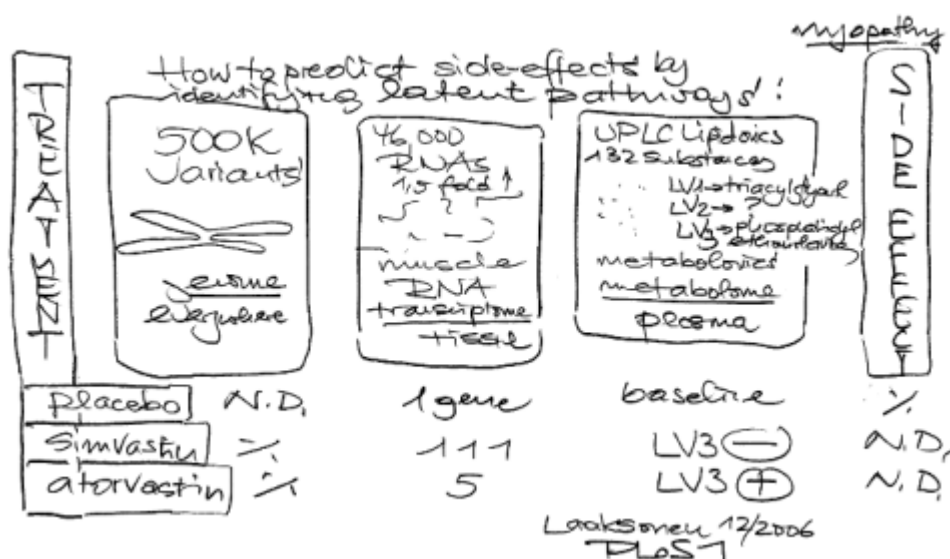 myopathy
How to predict side-effects by
identifying latent pathways!
TREATMENT
500K
Variants
genome
everywhere
46,000
RNAs
1,5 fold ↑
muscle
RNA
transcriptome
tissue
UPLC Lipdoics
132 Substances
LV1→triacylglycerol
LV2→ ?
LV3→phosphatidyl
ethanolamine
metabolomics
metabolome
plasma
SIDE EFFECT
placebo N.D. 1 gene baseline %
Simvastin % 111 LV3 ⊖ N.D.
atorvastin % 5 LV3 ⊕ N.D.
Laaksonen 12/2006
PLoS 1